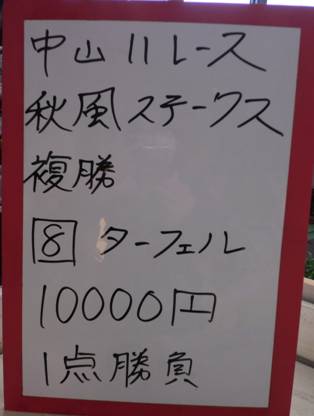 中山11レース
秋風ステークス
複勝
8 ターフェル
10000円
1点勝負